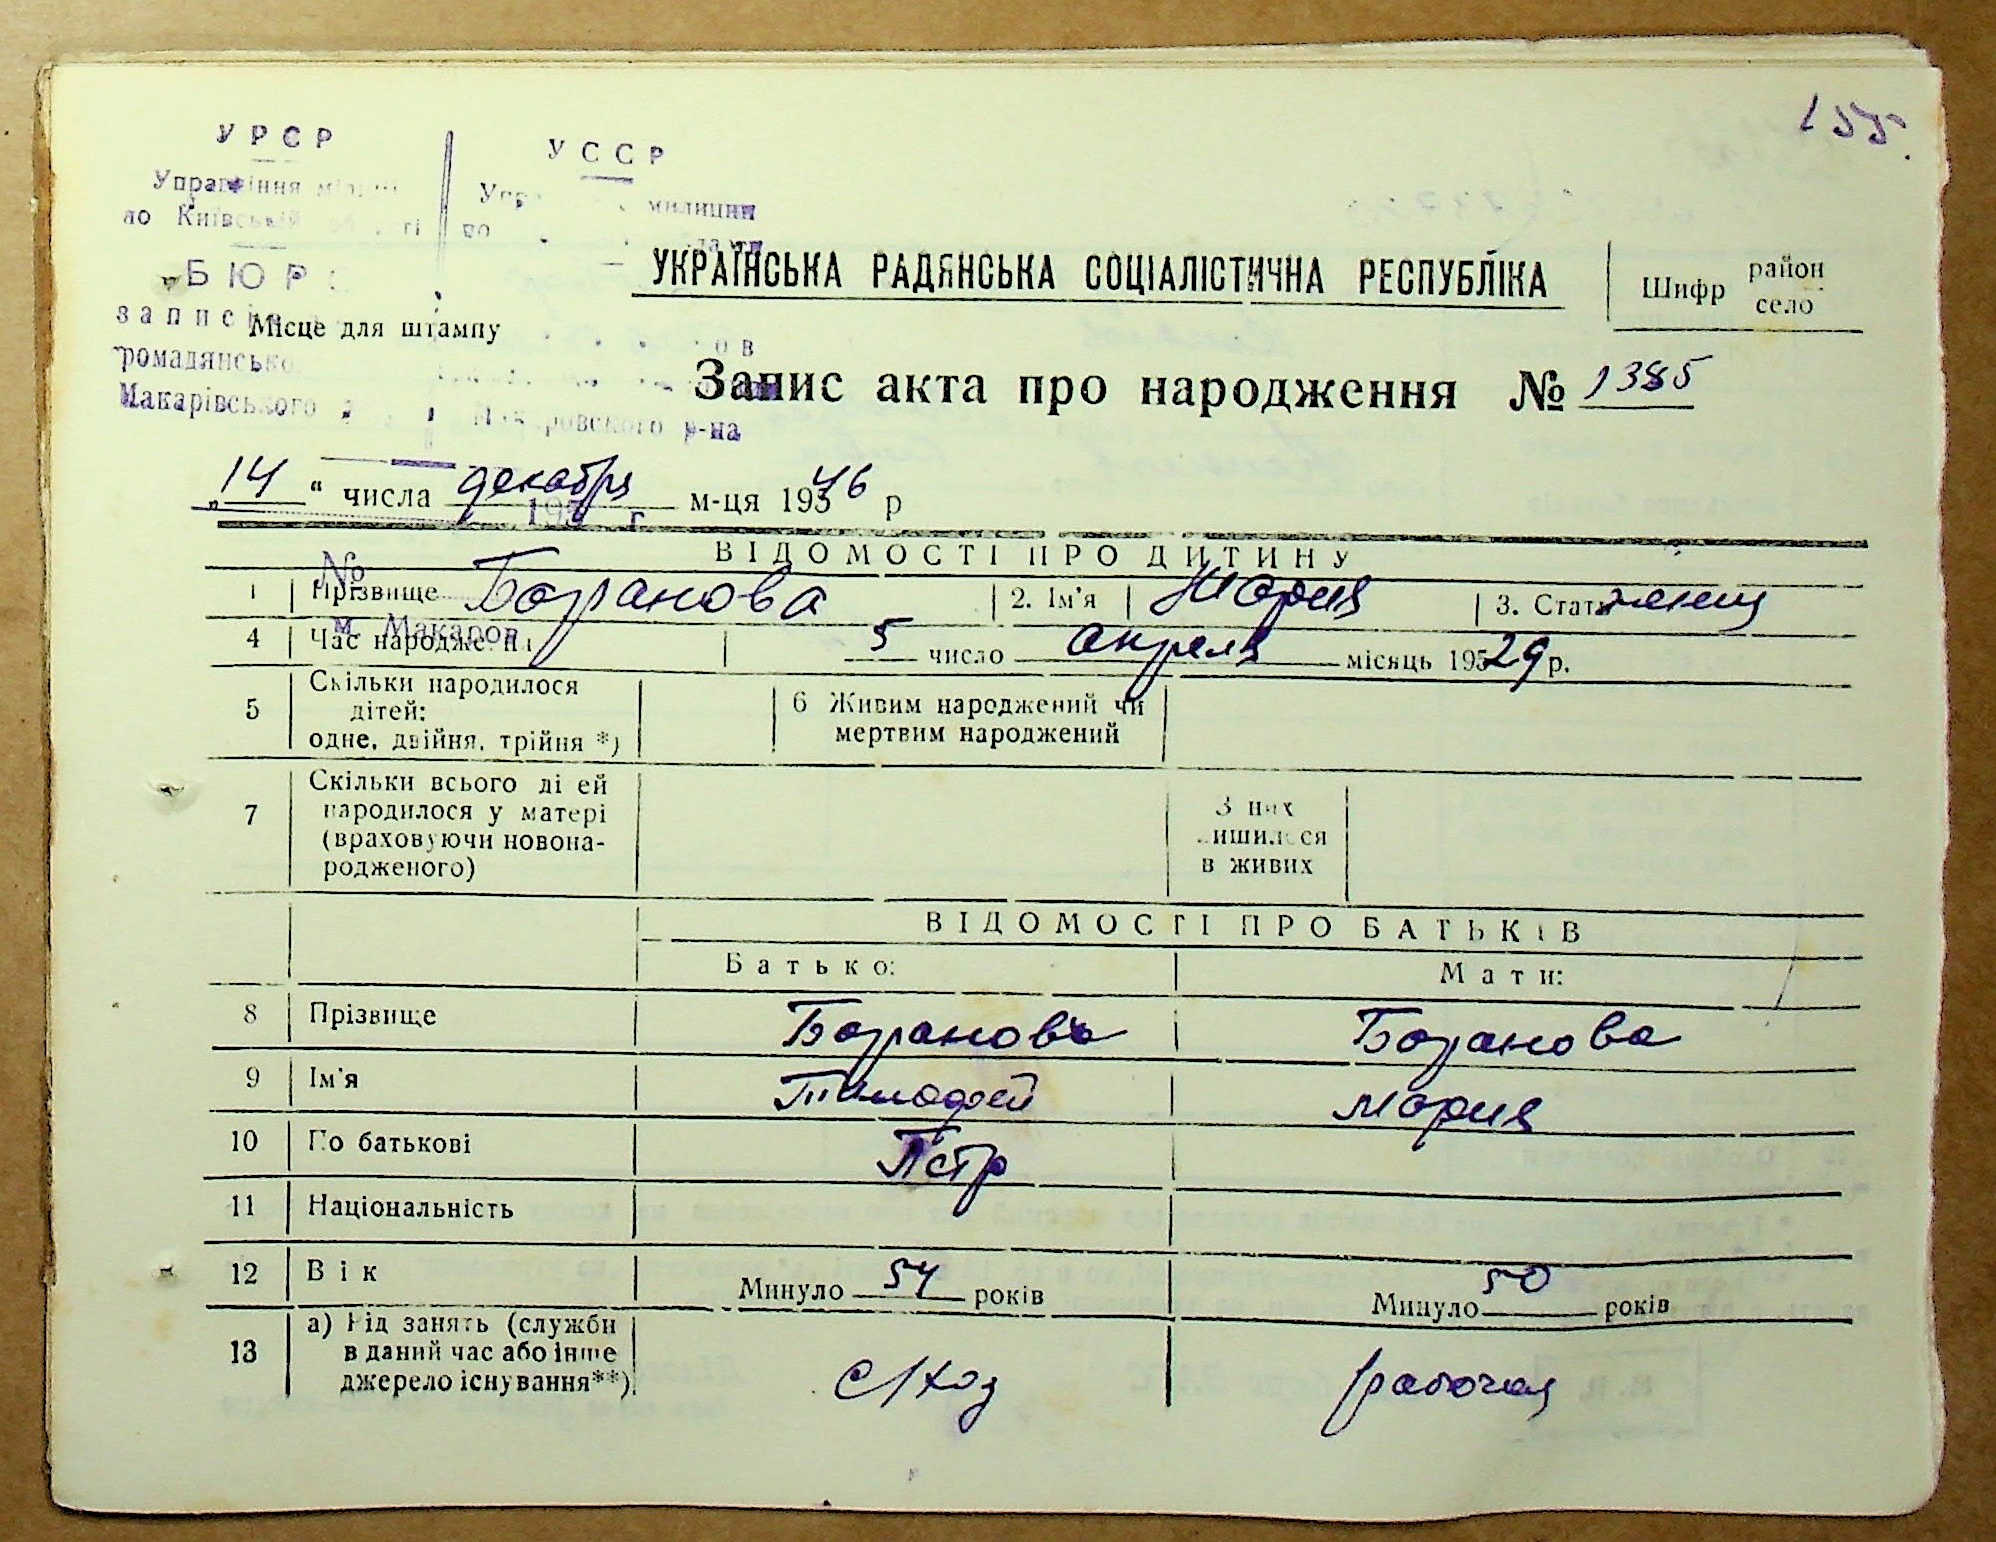 УРСР
УССР
Управління
милиции
по Київській
по
БЮРО
УКРАЇНСЬКА РАДЯНСЬКА СОЦІАЛІСТИЧНА РЕСПУБЛІКА
Шифр район село
Місце для штампу
громадянсько
Запис акта про народження № 1385
Макарівського
р-на
„14“ числа декабря м-ця 1946 р
ВІДОМОСТІ ПРО ДИТИНУ
№
1 Прізвище Боранова 2. Ім'я Мария 3. Стать женщ
м. Макаров
4 Час народження 5 число апреля місяць 1929 р.
5 Скільки народилося дітей: одне, двійня, трійня *)
6 Живим народжений чи мертвим народжений
7 Скільки всього дітей народилося у матері (враховуючи новона-родженого)
З них лишилося в живих
ВІДОМОСТІ ПРО БАТЬКІВ
Батько: Мати:
8 Прізвище Боранов Боранова
9 Ім'я Тимофей Мария
10 По батькові Петр
11 Національність
12 Вік Минуло 54 років Минуло 50 років
13 а) Рід занять (служби в даний час або інше джерело існування**) с/хоз рабочая